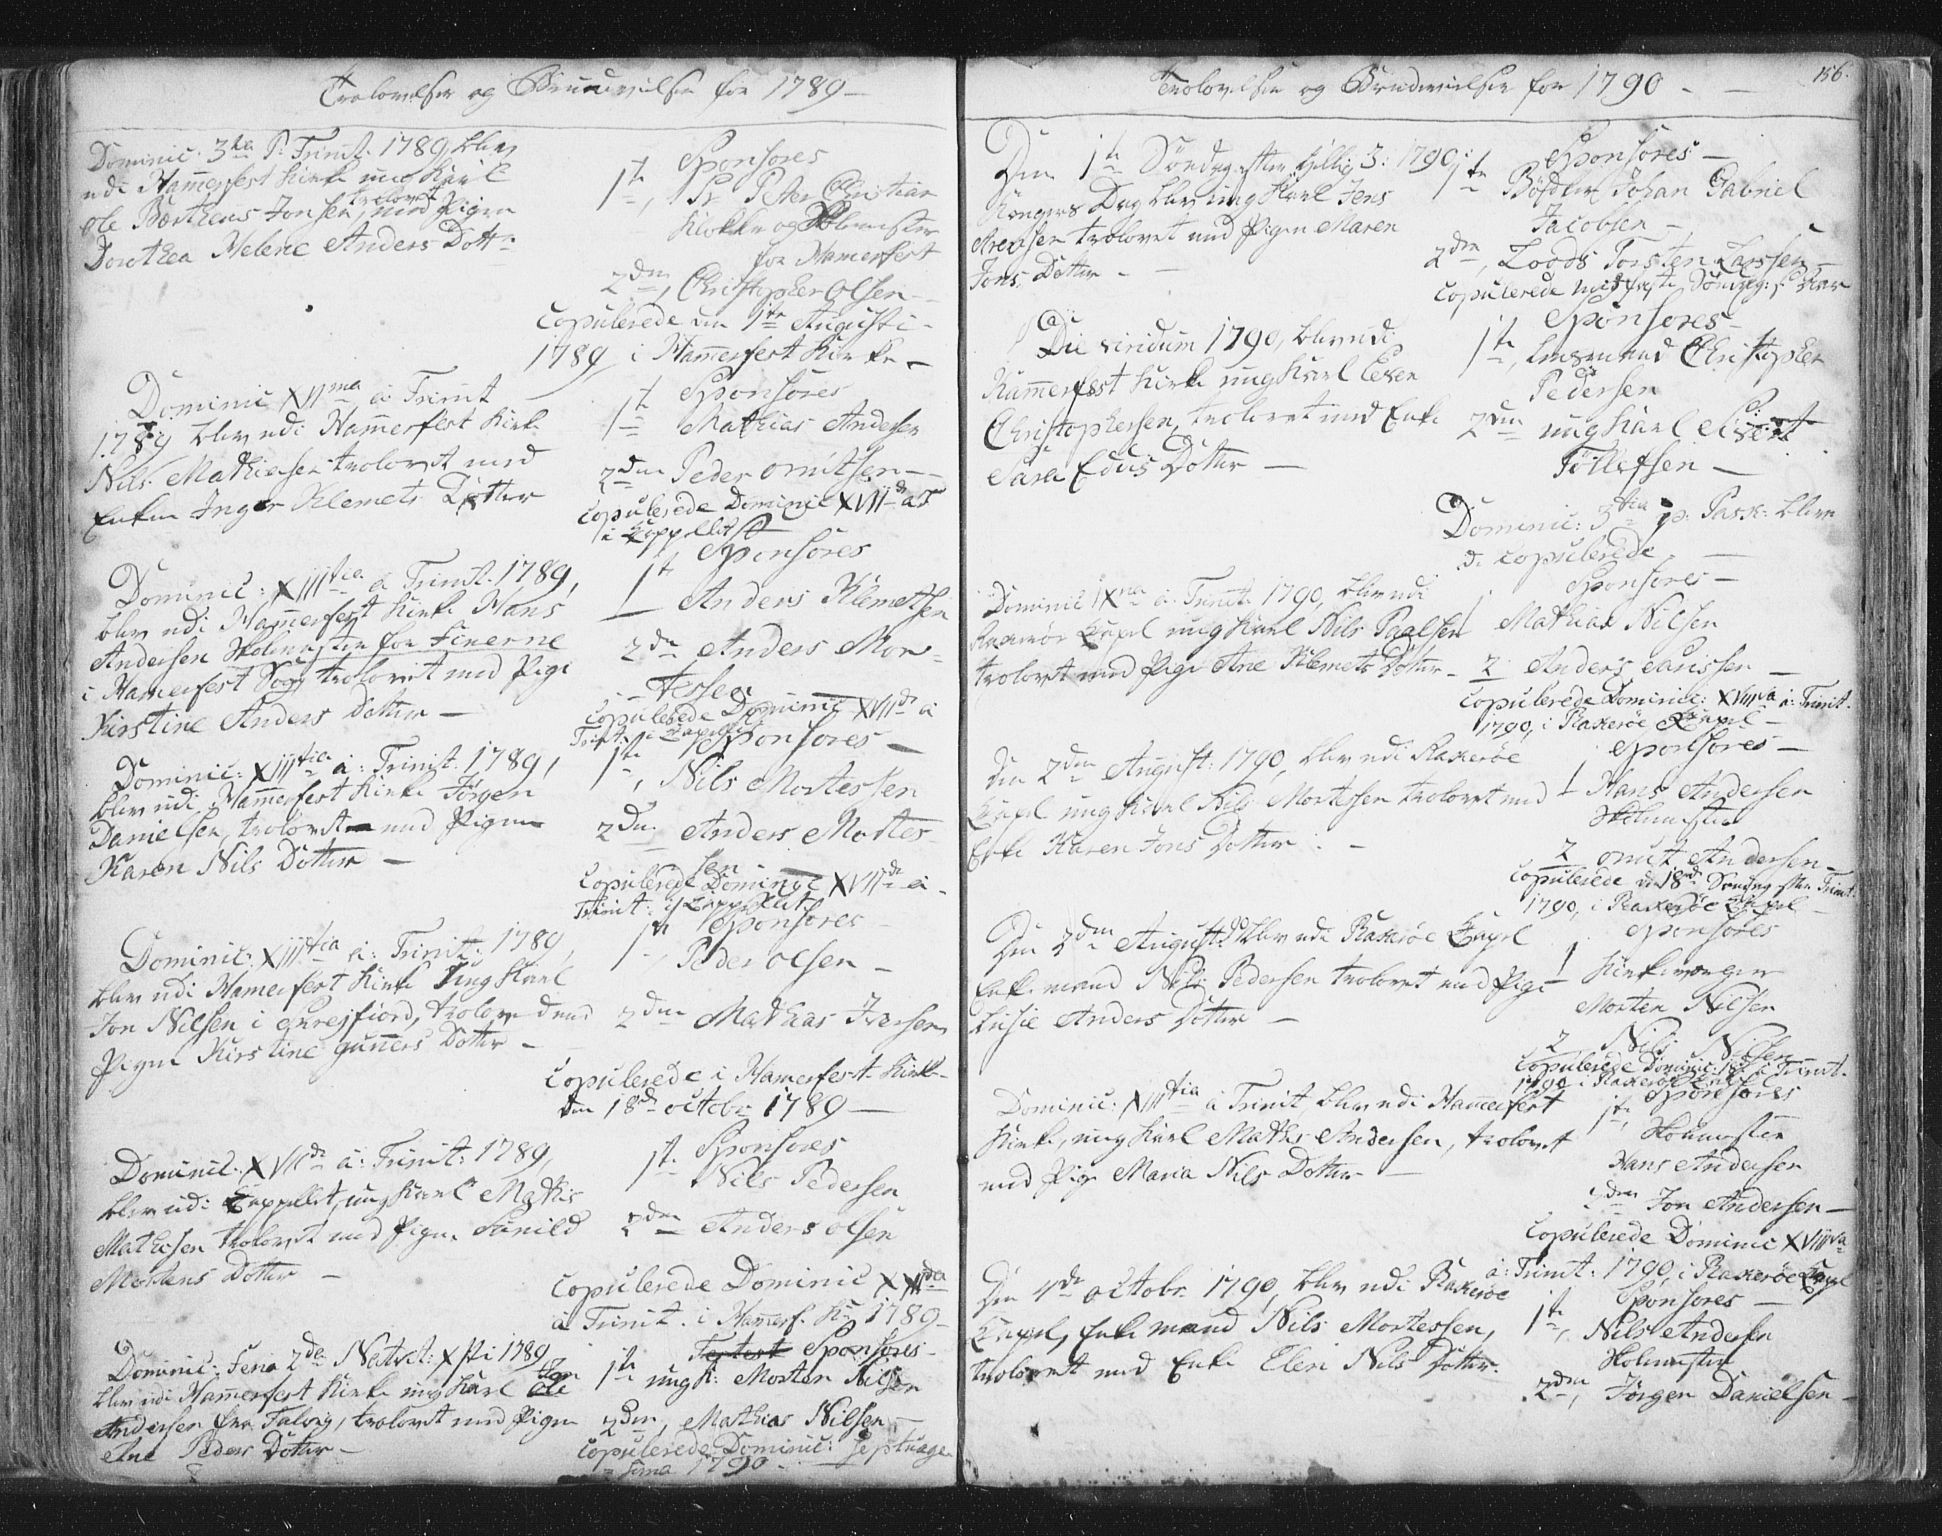 Trolovelser og Brudevielser for 1789 —
Dominic. 3tia P. Trinit. 1789 blev
udi Hamerfest Kirke ung Karl
Ole Bærtheus Jonsen, trolovet med Pigen
Dorothea Helene Anders Dott:
Sponsores
1te, Sr Peter Christian
Klokker og Skolemester
for Hamerfest
2den, Christopher Olsen —
Copulerede den 1te Augusti
1789 i Hamerfest Kirke —
Dominic XIIma a Trinit
1789 blev udi Hamerfest Kirke
Nils Mathiesen trolovet med
Enken Inger Klemets Dotter
Sponsores
1te Mathias Andersen
2den Peder Omitsen —
Copulerede Dominic XVIIde a T
i Kappellet
Dominic: XIIItia a Trinit. 1789,
blev udi Hamerfest Kirke Hans
Andersen Skolemester for Finerne
i Hamerfest Sogn trolovet med Pige
Kirstine Anders Dotter —
Sponsores
1te Anders Klemetsen
2den Anders Mor-
tessen
Copulerede Dominic XVIIde a
Trinit: i Cappellet
Dominic: XIIItia a: Trinit. 1789,
blev udi Hamerfest Kirke Jörgen
Danielsen, trolovet med Pigen
Karen Nils Dotter —
Sponsores —
1te, Nils Mortessen
2den Anders Mortes-
sen
Copulerede Dominic XVIIde a
Trinit: i Cappellet
Dominic: XIIItia a: Trinit: 1789,
blev udi Hamerfest Kirke Ung Karl
Jon Nilsen i fiord, troloved med
Pigen Kirstine Guners Dotter —
Sponsores
1te, Peder Olsen —
2den Mathias Iversen
Copulerede i Hamerfest Kirke
den 18de Octobr 1789 —
Dominic. XVIIde a: Trinit: 1789,
blev udi Cappellet, ung Karl Mathis
Mathisen trolovet med Pigen Sunild
Mortens Dotter —
Sponsores
1te Nils Pedersen
2den Anders Olsen
Copulerede Dominic
a Trinit. i Hamerf. K: 1789 —
Dominic: Feria 2da Nativit: Xsti 1789
blev udi Hamerfest Kirke ung Karl Jon
Andersen fra Talvig, trolovet med Pigen
Ane Peders Dotter —
Sponsores
1te ung K: Morten Nilsen
2den, Mathias Nilsen —
Copulerede Dominic: Septuage-
sima 1790 —
Trolovelser og Brudevielser for 1790 — —
156.
Den 1te Söndag efter Hellig 3:
Kongers Dag 1790: blev ung Karl Jens
Arentsen trolovet med Pigen Maren
Jons Dotter — —
Sponsores —
1te Johan Gabriel
Jacobsen —
2den, Loods Torsten Larssen —
Copulerede
Die viridum 1790, blev udi
Hamerfest Kirke ung Karl Peder
Christophersen, trolovet med Enke
Sara Dotter —
Sponsores —
1te, Christopher
Pedersen
2den ung Karl Sivert
Tollefsen —
Dominic: 3tia p: Pask: bleve
de Copulerede —
Dominic IXna a: Trinit. 1790, blev udi
Rakeröe Capel ung Karl Nils Paalsen
trolovet med Pige Ane Klemets Dotter —
Sponsores —
1 Mathias Nilsen
2 Anders Larissen —
Copulerede Dominic: XVIIIva a: Trinit.
1790, i Rakeröe Capel —
Den 2den August: 1790, blev udi Rakeröe
Capel ung Karl Nils Mortessen trolovet med
Enke Karen Jons Dotter . —
Sponsores —
1 Hans Andersen
Skolmester
2 Omit Andersen —
Copulerede d: 18de Söndag efter Trinit.
1790, i Rakeröe Capel —
Den 2den August: blev udi Rakeröe Capel
Enke mand Nils Pedersen trolovet med Pige
Lusie Anders Dotter —
Sponsores
1 Kirkeværger
Morten Nilsen
2 Nils Nilsen
Copulerede Dominic: 18de a Trinit.
1790 i Rakeröe Capel
Dominic: XIIItia a Trinit, blev udi Hamerfest
Kirke, ung Karl Maths Andersen, trolovet
med Pige Maria Nils Dotter —
Sponsores
1te, Skolmester
Hans Andersen
2den Jon Andersen —
Copulerede Dominic XVIIIva
a: Trinit: 1790, i Rakeröe Capel
Den 4de Octobr: 1790, blev udi Rakeröe
Capel, Enke mand Nils Mortessen,
trolovet med Enke Elen Nils Dotter.
Sponsores —
1te, Nils Andersen
Skolmester
2den, Jörgen Danielsen —